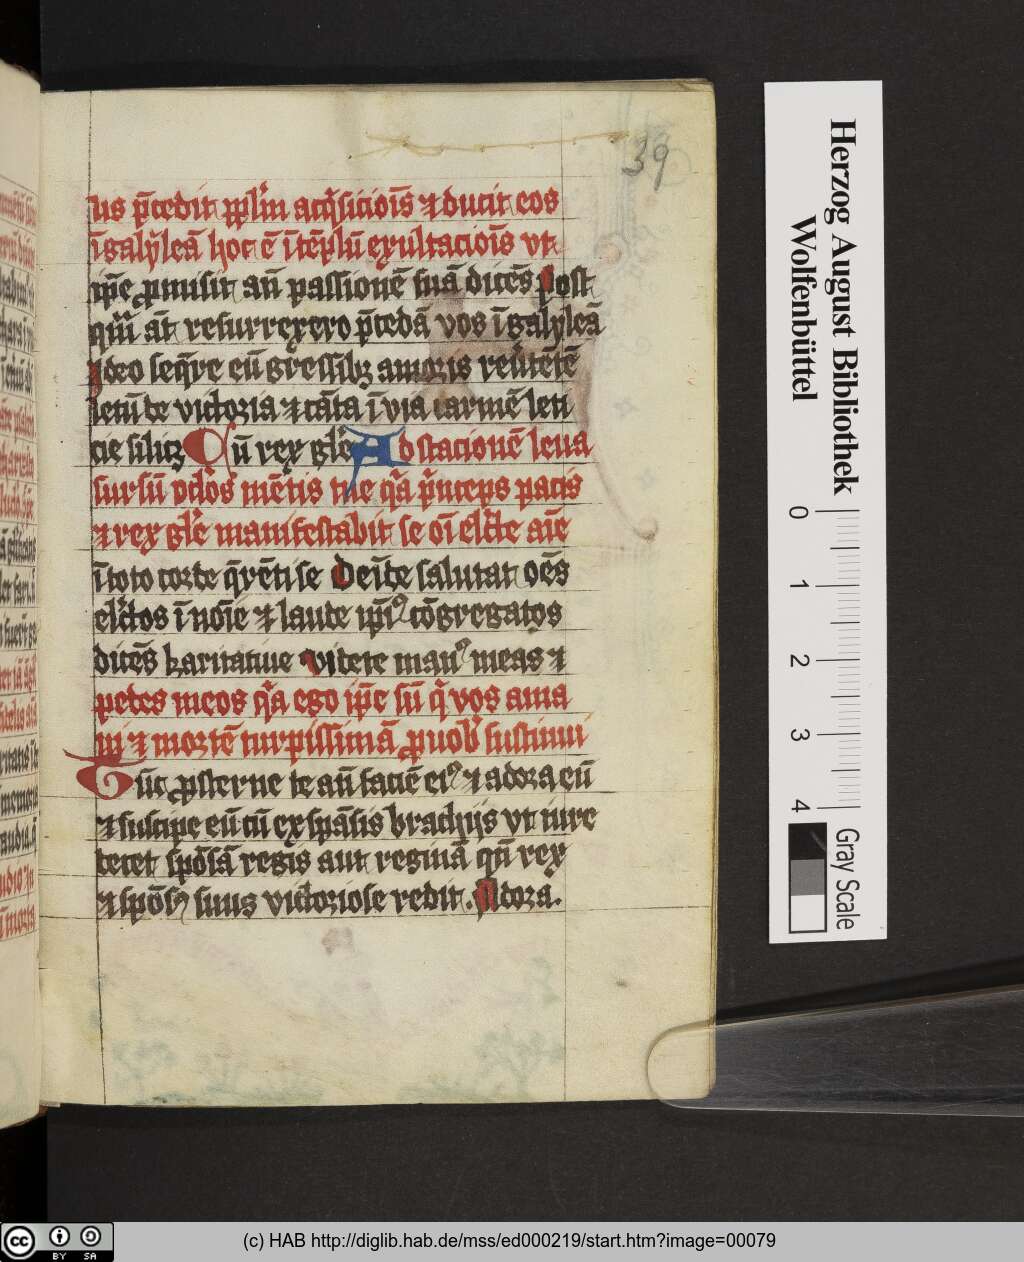 39
us p̄cedit pplm̄ acq̇sicioīs ⁊ ducit eos
ī galyleā hoc ē ī tēplū exultacioīs vt
ip̄e ꝓmisit an̄ passionē suā dicēs Post
qm̄ at̄ resurrexero p̄cedā vos ī galyleā
Ideo seq̄re eū gressibꝫ amoris reūtētē
letū de victoria ⁊ cāta ī via carmē leti
cie silicꝫ Cū rex glē Ad stacionē leua
sursū oclōs mētis tue q̇a p̄nceps pacis
⁊ rex glē manifestabit se oī elc̄te aīe
ī toto corde q̄rēti se Deīde salutat oēs
elc̄tos ī noīe ⁊ laude ip̄iꝰ cōgregatos
dicēs karitatiue Videte manꝰ meas ⁊
pedes meos q̇a ego ip̄e sū q̇ vos ama
ui ⁊ mortē turpissimā ꝓ uob̄ sustinui
Tūc ꝓsterne te an̄ faciē eiꝰ ⁊ adora eū
⁊ suscipe eū cū expāsis brachijs vt iure
decet spōsā regis aut reginā qn̄ rex
⁊ spōsꝰ suus victoriose redit. Adora.
Herzog August Bibliothek
Wolfenbüttel
0 1 2 3 4
Gray Scale
cc BY SA
(c) HAB http://diglib.hab.de/mss/ed000219/start.htm?image=00079